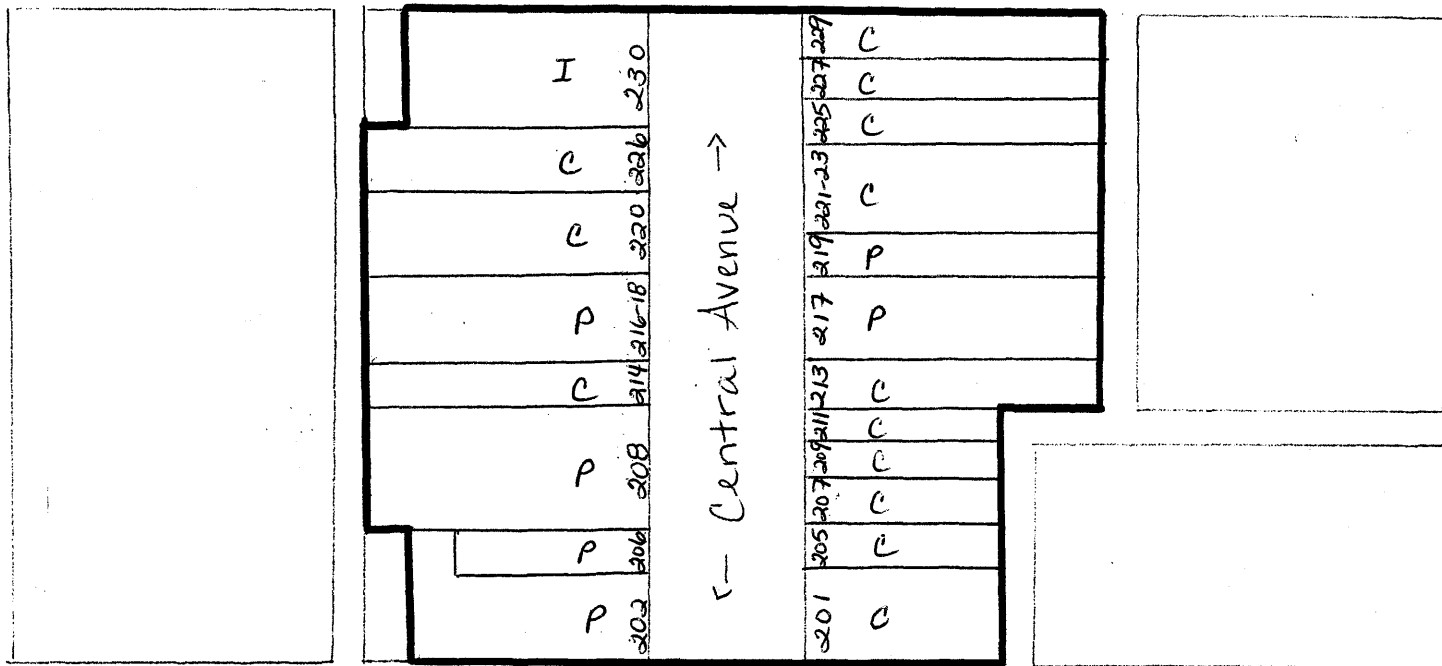 I 230
C 226
C 220
P 216-18
C 214
P 208
P 206
P 202
<- Central Avenue ->
229 C
227 C
225 C
221-23 C
219 P
217 P
213 C
211 C
209 C
207 C
205 C
201 C